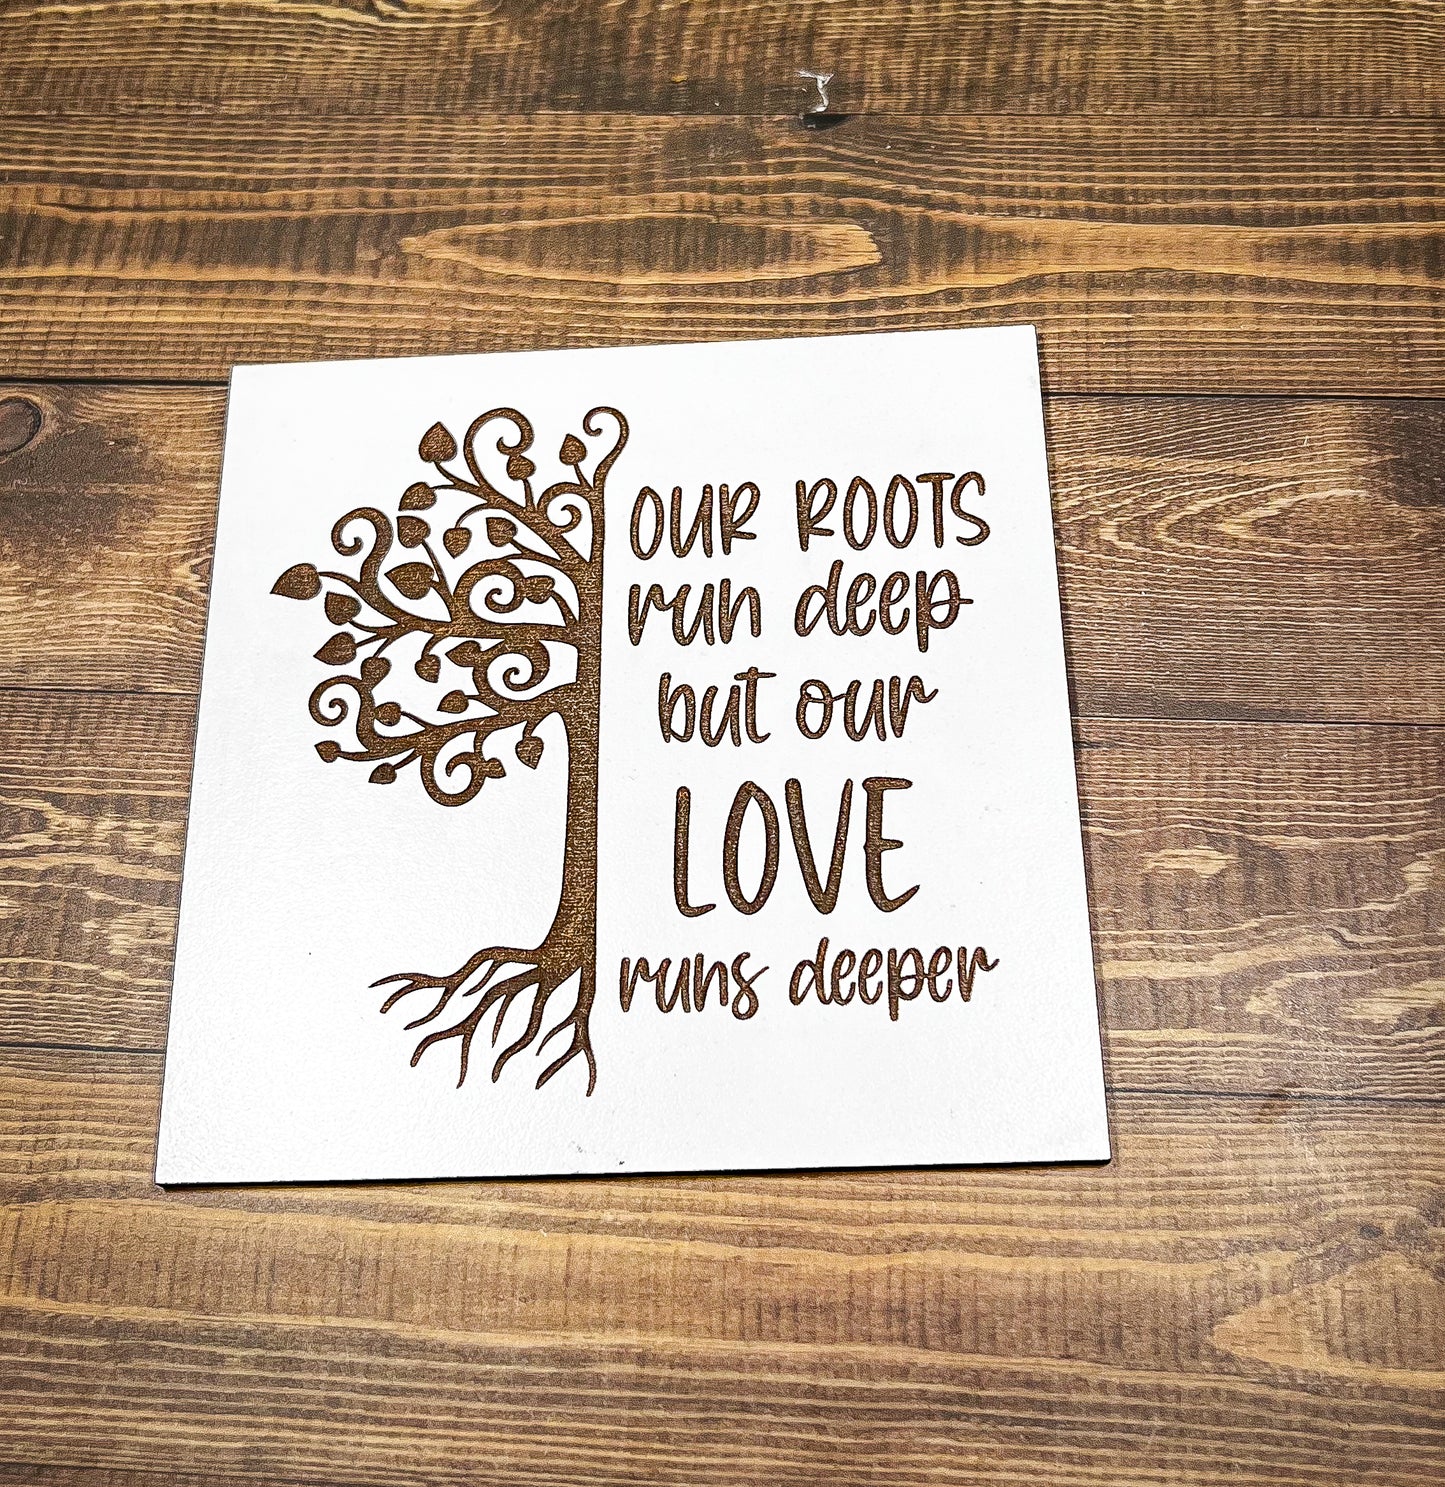 OUR ROOTS
run deep
but our
LOVE
runs deeper